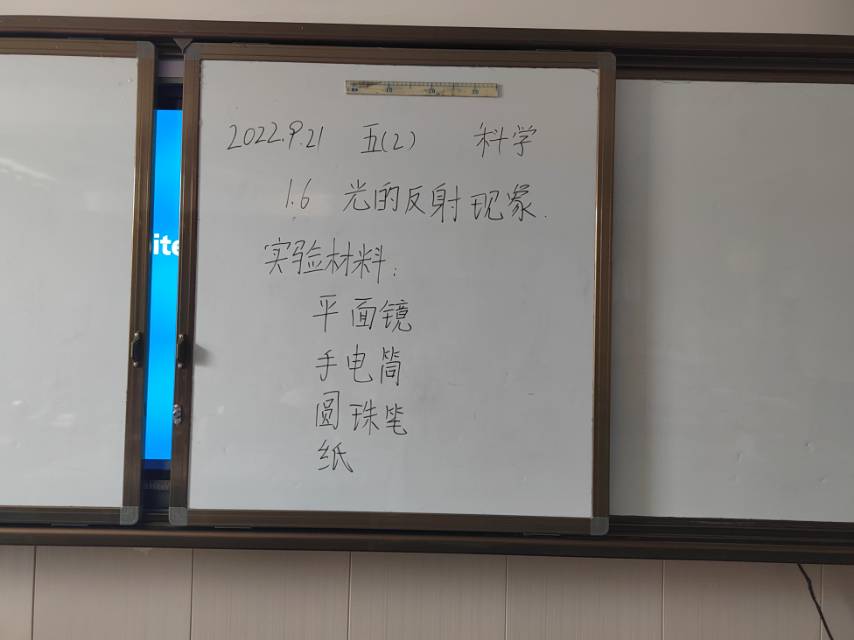 2022.9.21 五(2) 科学
1.6 光的反射现象.
实验材料:
平面镜
手电筒
圆珠笔
纸
ite